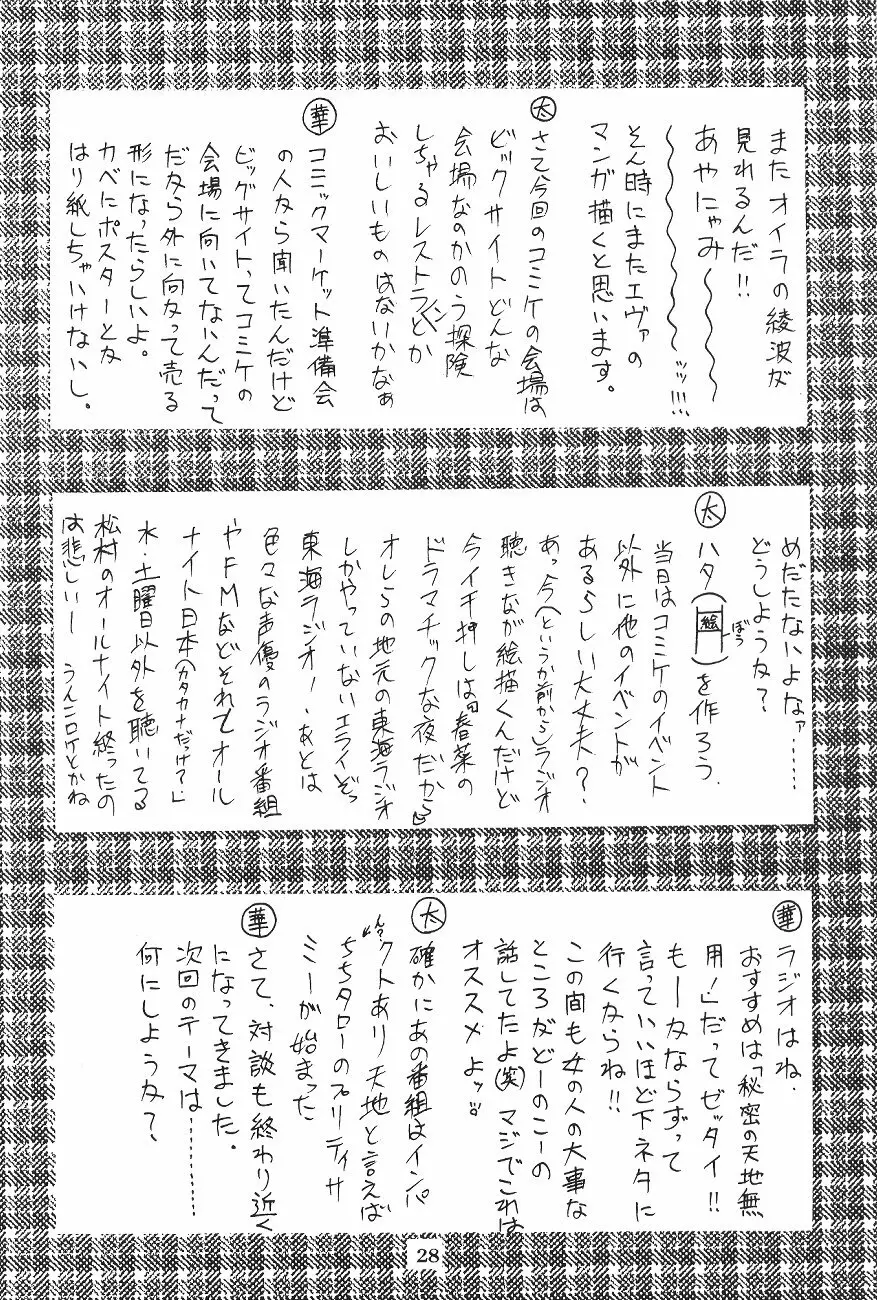 またオイラの綾波が
見れるんだ!!
あやにゃみ〜〜〜
〜〜〜〜〜〜ッッ!!!
そん時にまたエヴァの
マンガ描くと思います。
太 さて今回のコミケの会場は
ビックサイトどんな
会場なのかのう探険
しちゃるレストランとか
おいしいものはないかなぁ
華 コミックマーケット準備会
の人から聞いたんだけど
ビッグサイトってコミケの
会場に向いてないんだって
だから外に向かって売る
形になったらしいよ。
カベにポスターとか
はり紙しちゃいけないし。
めだたないよなァ……
どうしようか?
太 ハタ(絵 ぼう)を作ろう。
当日はコミケのイベント
以外に他のイベントが
あるらしい大丈夫?
あっ今(というか前から)ラジオ
聴きなが絵描くんだけど
今イチ押しは「春菜の
ドラマチックな夜だから」
オレらの地元の東海ラジオ
しかやっていないエライぞっ
東海ラジオ!、あとは
色々な声優のラジオ番組
やFMなどそれとオール
ナイト日本(カタカナだっけ?)
水・土曜日以外を聴いてる
松村のオールナイト終ったの
は悲しいー
華 ラジオはね、
おすすめは「秘密の天地無
用!」だってゼッタイ!!
もーかならずって
言っていいほど下ネタに
行くからね!!
この間も女の人の大事な
ところがどーのこーの
話してたよ(笑)マジでこれは
オススメよッ!!
太 確かにあの番組はインパ
クトあり天地と言えば
ちちタローのプリティサ
ミーが始まった
華 さて、対談も終わり近く
になってきました。
次回のテーマは…………
何にしようか?
28